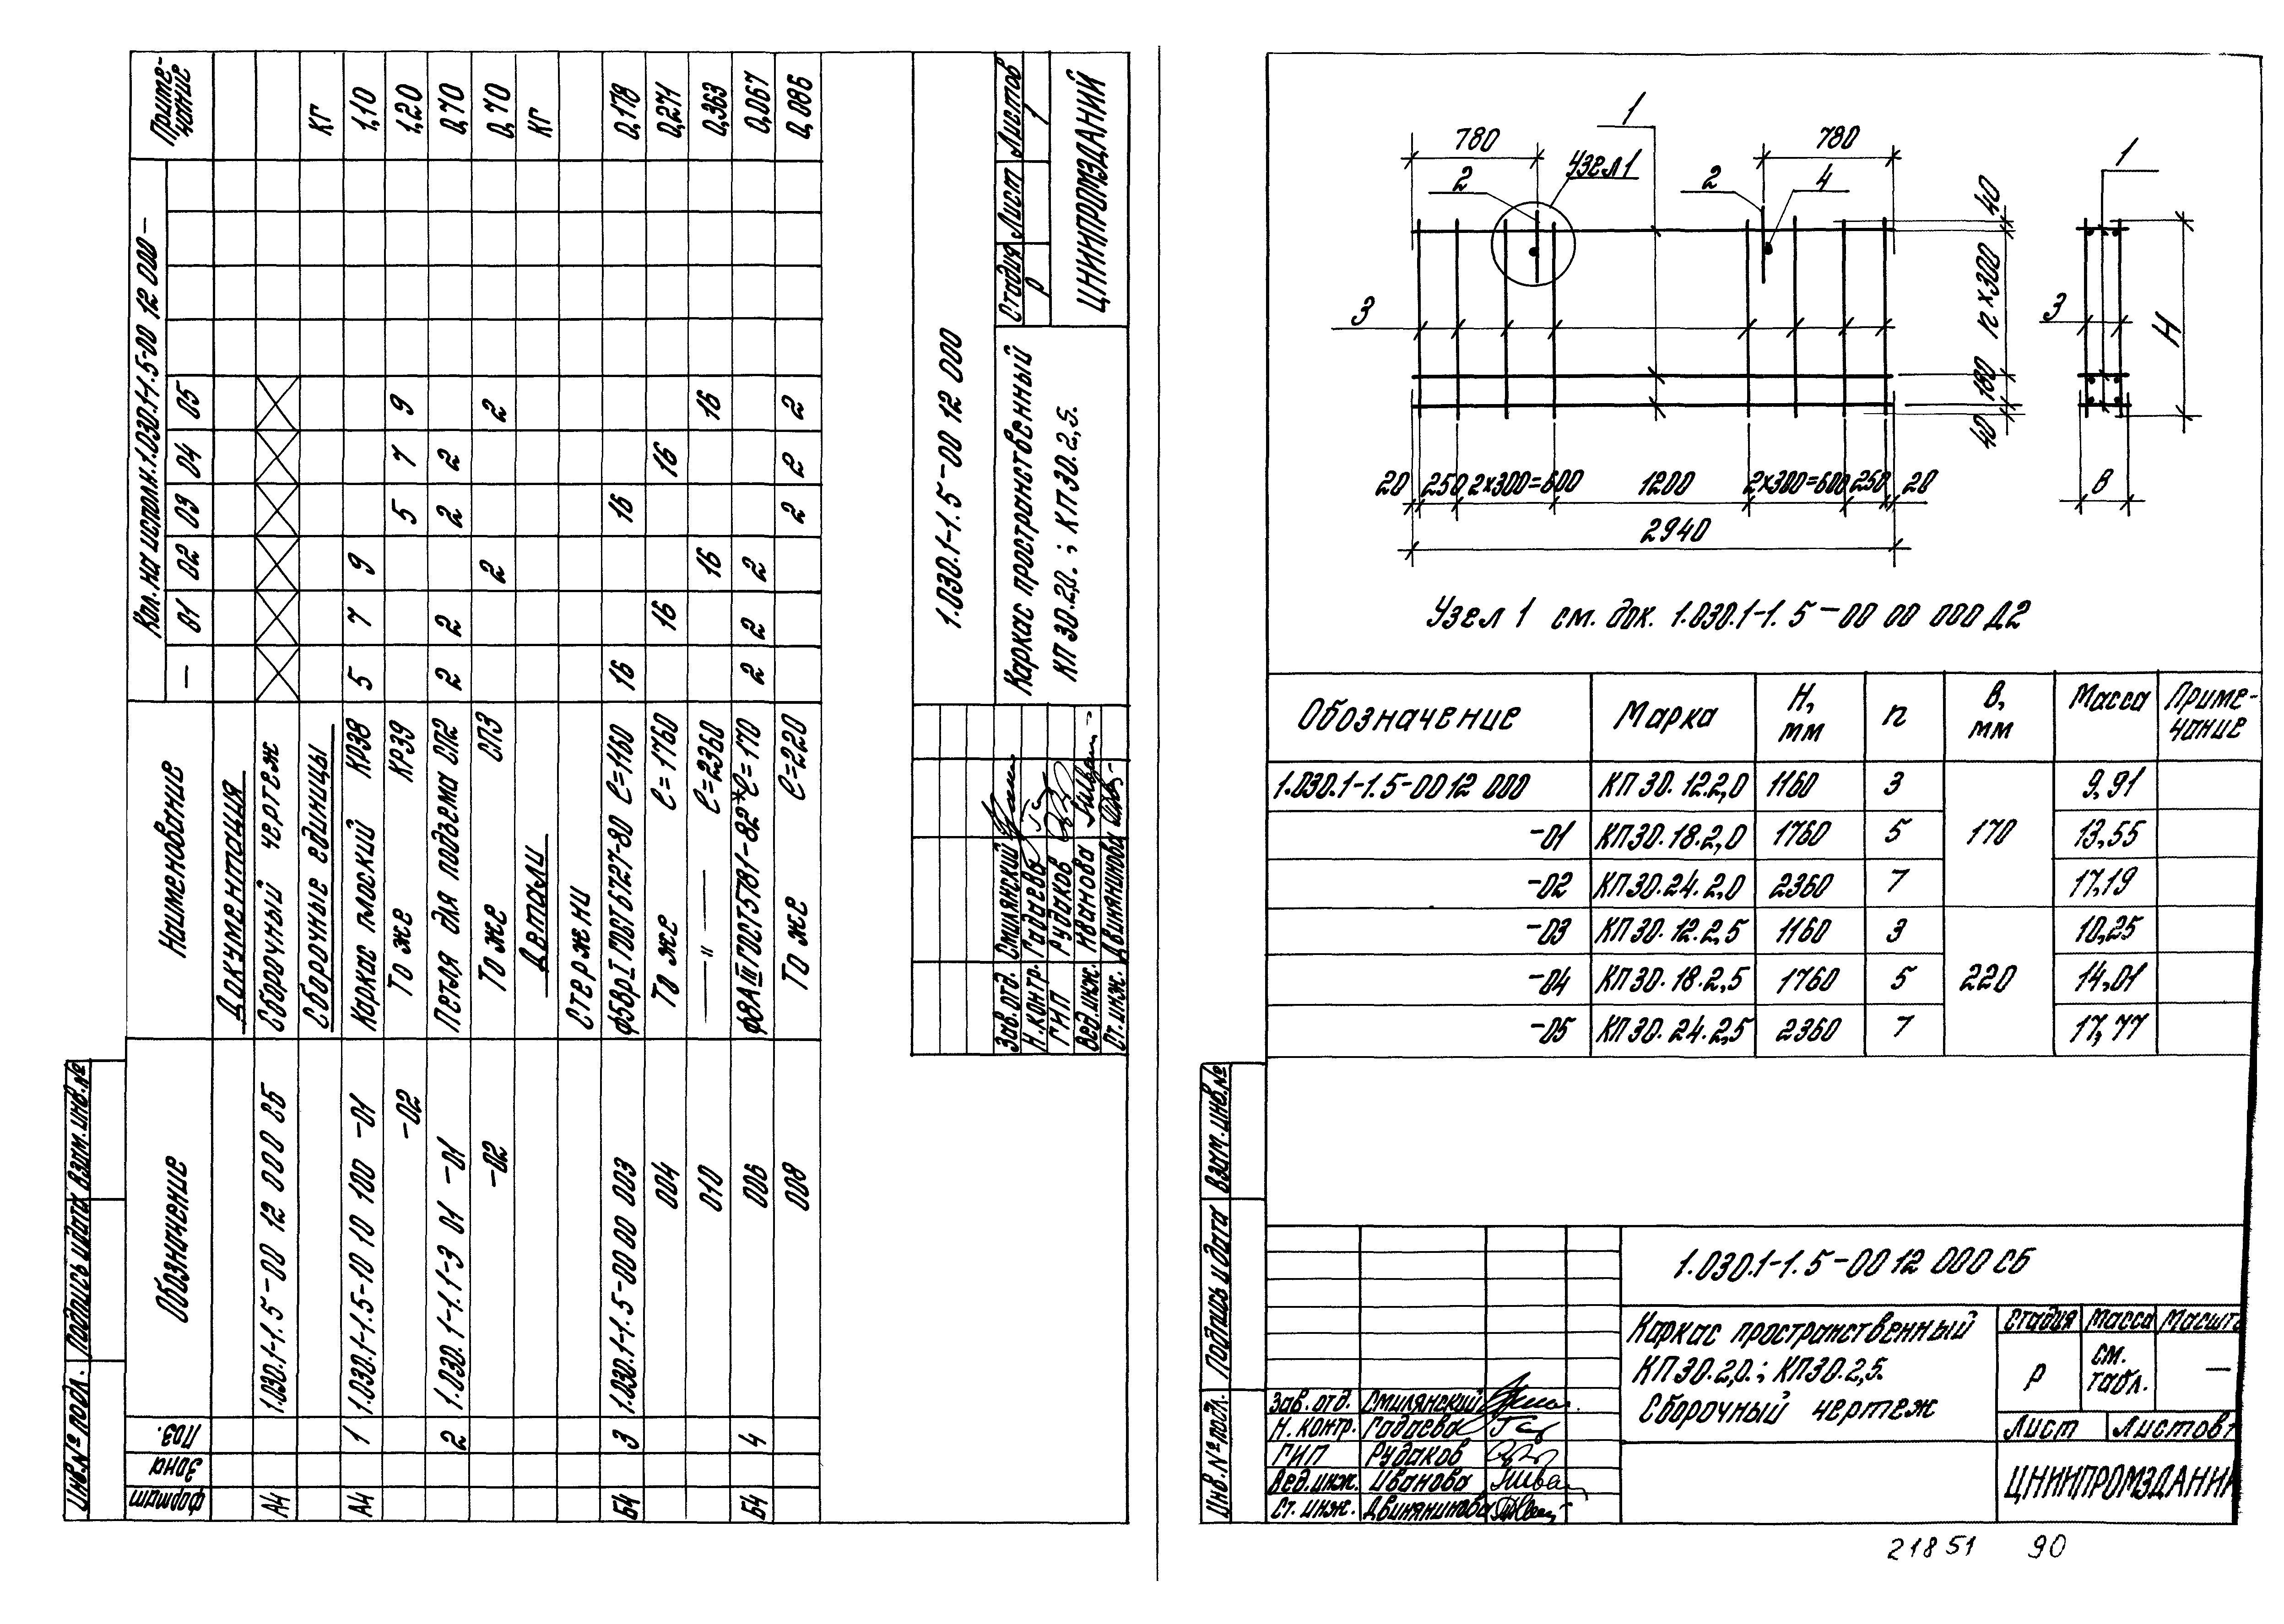 Формат Зона Поз. Обозначение Наименование Кол. на исполн. 1.030.1-1.5-00 12 000 — Приме-чание
— 01 02 03 04 05
Документация
А4 1.030.1-1.5-00 12 000 СБ Сборочный чертеж
Сборочные единицы кг
А4 1 1.030.1-1.5-10 10 100 -01 Каркас плоский КР38 5 7 9 1,10
-02 То же КР39 5 7 9 1,20
2 1.030.1-1.1-3 01 -01 Петля для подъема СП2 2 2 2 2 0,70
-02 То же СП3 2 2 0,70
Детали кг
Стержни
Б4 3 1.030.1-1.5-00 00 003 ф5ВрI ГОСТ 6727-80 ℓ=1160 16 16 0,178
004 То же ℓ=1760 16 16 0,271
010 —〃— ℓ=2360 16 16 0,363
Б4 4 006 ф8АIII ГОСТ 5781-82* ℓ=170 2 2 2 0,067
008 То же ℓ=220 2 2 2 0,086
1.030.1-1.5-00 12 000
Каркас пространственный
КП 30.2,0.; КП 30.2,5.
Стадия Лист Листов
Р 1
ЦНИИПРОМЗДАНИЙ
Зав.отд. Смилянский
Н.контр. Гадаева
ГИП Рудаков
Вед.инж. Иванова
Ст.инж. Двинянинова
Инв.№ подл. Подпись и дата Взам.инв.№
780 1 780 1
2 Узел 1 2 4
40
3 n×300 3 H
180
40
20 250 2×300=600 1200 2×300=600 250 20 В
2940
Узел 1 см. док. 1.030.1-1.5-00 00 000 Д2
Обозначение Марка Н, мм n В, мм Масса Приме-чание
1.030.1-1.5-00 12 000 КП 30.12.2,0 1160 3 9,91
-01 КП 30.18.2,0 1760 5 170 13,55
-02 КП 30.24.2,0 2360 7 17,19
-03 КП 30.12.2,5 1160 3 10,25
-04 КП 30.18.2,5 1760 5 220 14,01
-05 КП 30.24.2,5 2360 7 17,77
1.030.1-1.5-00 12 000 СБ
Каркас пространственный
КП 30.2,0.; КП30.2,5.
Сборочный чертеж
Стадия Масса Масшта
Р см. табл. —
Лист Листов 1
ЦНИИПРОМЗДАНИЙ
Зав.отд. Смилянский
Н.контр. Гадаева
ГИП Рудаков
Вед.инж. Иванова
Ст.инж. Двинянинова
Инв.№ подл. Подпись и дата Взам.инв.№
21851 90